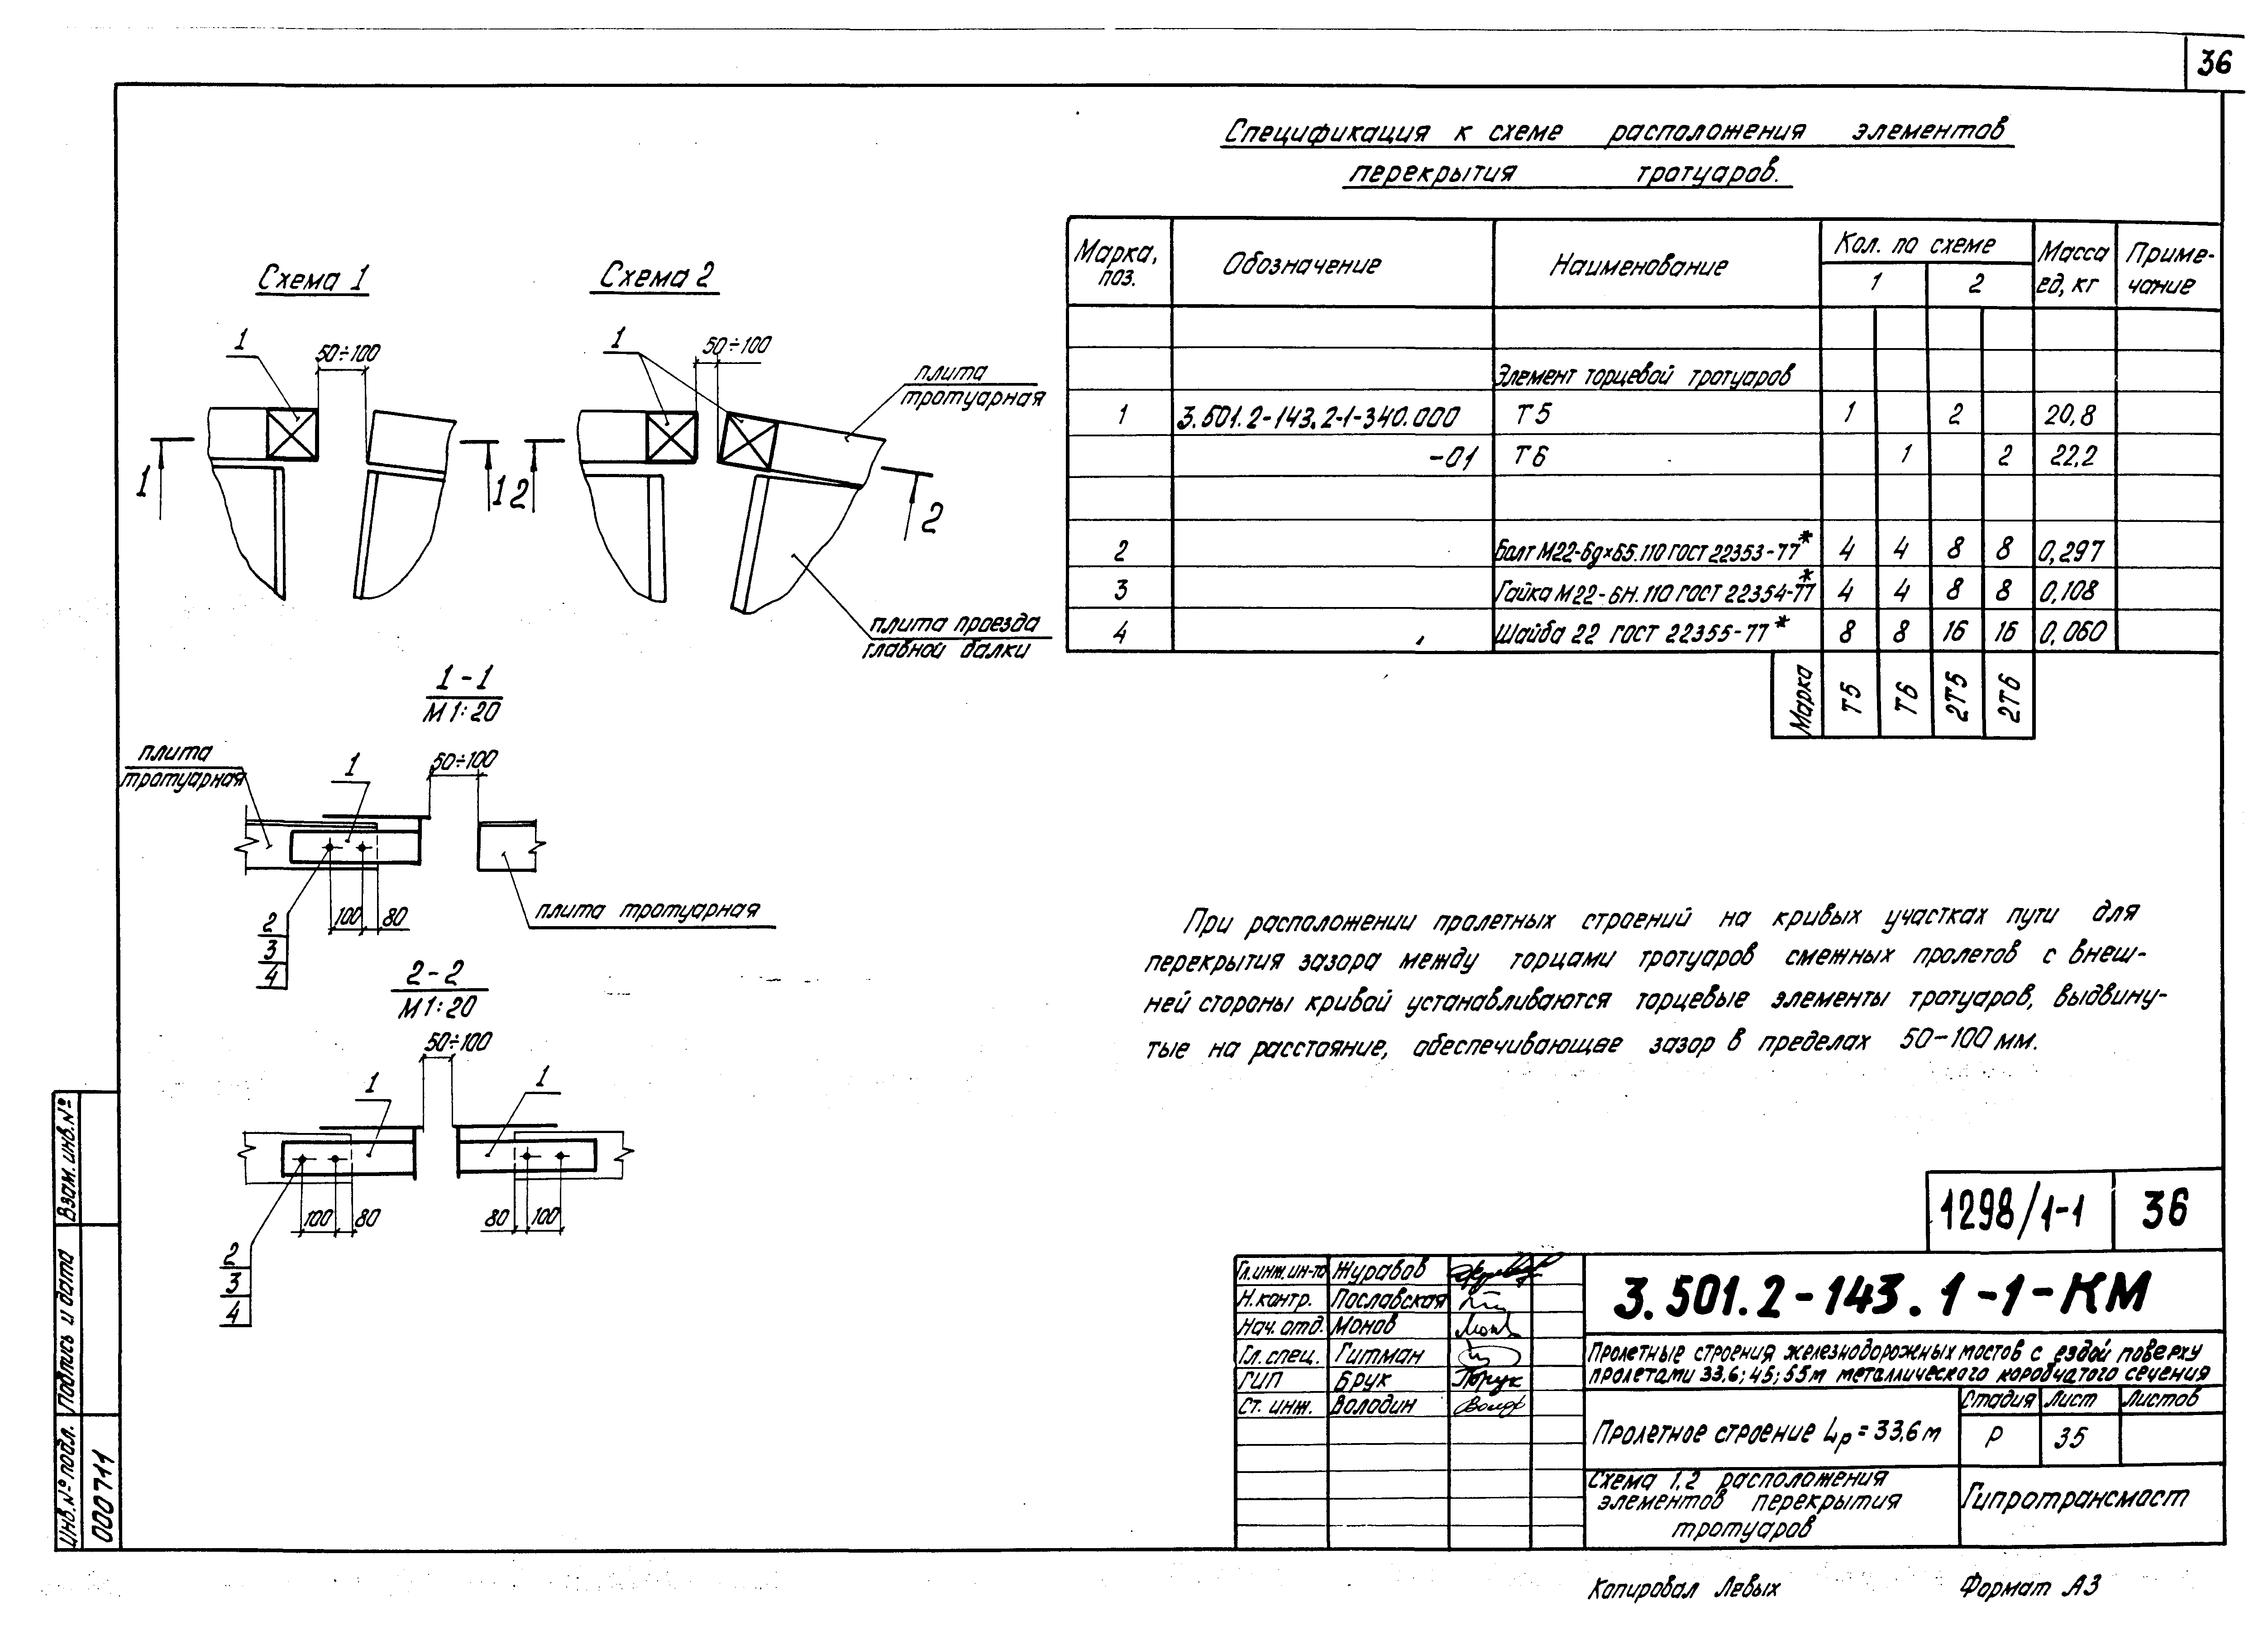 36
Спецификация к схеме расположения элементов
перекрытия тротуаров.
Марка, поз.
Обозначение
Наименование
Кол. по схеме
1
2
Масса ед, кг
Приме-
чание
Элемент торцевой тротуаров
1 3.501.2-143.2-1-340.000 Т5 1 2 20,8
-01 Т6 1 2 22,2
2 Болт М22-6g×65.110 ГОСТ 22353-77* 4 4 8 8 0,297
3 Гайка М22-6Н.110 ГОСТ 22354-77* 4 4 8 8 0,108
4 Шайба 22 ГОСТ 22355-77* 8 8 16 16 0,060
Марка Т5 Т6 2Т5 2Т6
Схема 1
1
50÷100
1
1
Схема 2
1
50÷100
плита
тротуарная
2
2
плита проезда
главной балки
1-1
М 1:20
плита
тротуарная
1
50÷100
100
80
2
3
4
плита тротуарная
2-2
М 1:20
50÷100
1
1
100
80
80
100
2
3
4
При расположении пролетных строений на кривых участках пути для
перекрытия зазора между торцами тротуаров смежных пролетов с внеш-
ней стороны кривой устанавливаются торцевые элементы тротуаров, выдвину-
тые на расстояние, обеспечивающее зазор в пределах 50-100 мм.
1298/1-1
36
Гл. инж. ин-та Журавов
Н. контр. Пославская
Нач. отд. Монов
Гл. спец. Гитман
ГИП Брук
Ст. инж. Володин
3.501.2-143.1-1-КМ
Пролетные строения железнодорожных мостов с ездой поверху
пролетами 33,6; 45; 55м металлического коробчатого сечения
Пролетное строение Lр = 33,6 м
Стадия Лист Листов
Р 35
Схема 1,2 расположения
элементов перекрытия
тротуаров
Гипротрансмост
Взам. инв. №
Подпись и дата
Инв. № подл.
000711
Копировал Левых
Формат А3